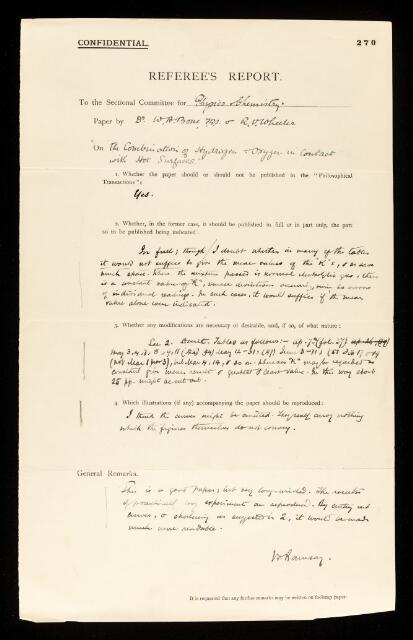 CONFIDENTIAL.
270
REFEREE'S REPORT.
To the Sectional Committee for Physics & Chemistry.
Paper by Dr W. A. Bone, FRS. & R. V. Wheeler
"On the Combination of Hydrogen & Oxygen in Contact
with Hot Surfaces
1. Whether the paper should or should not be published in the "Philosophical
Transactions":
Yes.
2. Whether, in the former case, it should be published in full or in part only, the part
so to be published being indicated:
In full; though I doubt whether in many of the tables
it would not suffice to give the mean values of the "K"s, & so save
much space. When the mixture passed is normal electrolytic gas, there
is a constant value of "K", small deviations occurring owing to errors
of individual readings. In such cases, it would suffice if the mean
value alone were indicated.
3. Whether any modifications are necessary or desirable, and, if so, of what nature:
See 2. Omit Tables as follows:—
constant give mean result & greatest & least value. In this way about
25 pp. might be cut out.
4. Which illustrations (if any) accompanying the paper should be reproduced:
I think the curves might be omitted. They really convey nothing
which the figures themselves do not convey.
General Remarks.
This is a good paper; but very long-winded. The results
of practically every experiment are reproduced. By cutting out
curves, & shortening as suggested in 2, it would be made
much more readable.
W Ramsay.
It is requested that any further remarks may be written on foolscap paper.